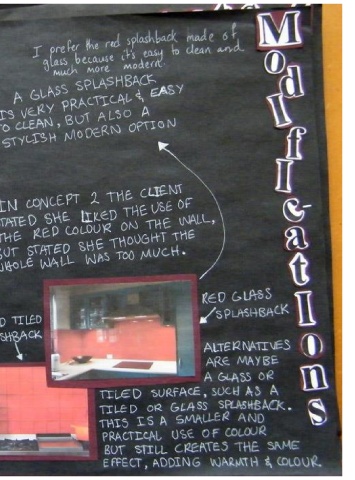 I prefer the red splashback made of
glass because it's easy to clean and
much more modern.
A GLASS SPLASHBACK
IS VERY PRACTICAL & EASY
TO CLEAN, BUT ALSO A
STYLISH MODERN OPTION
IN CONCEPT 2 THE CLIENT
STATED SHE LIKED THE USE OF
THE RED COLOUR ON THE WALL,
BUT STATED SHE THOUGHT THE
WHOLE WALL WAS TOO MUCH.
RED GLASS
SPLASHBACK
D TILED
SHBACK
ALTERNATIVES
ARE MAYBE
A GLASS OR
TILED SURFACE, SUCH AS A
TILED OR GLASS SPLASHBACK.
THIS IS A SMALLER AND
PRACTICAL USE OF COLOUR
BUT STILL CREATES THE SAME
EFFECT, ADDING WARMTH & COLOUR.
ModIfIcatIons